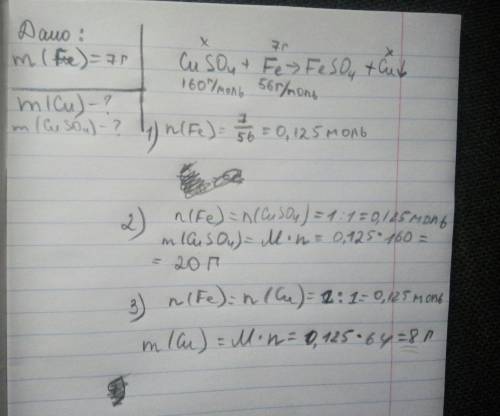 Дано:
m(Fe)=7г
m(Cu)-?
m(CuSO₄)-?
x 7г x
CuSO₄ + Fe → FeSO₄ + Cu↓
160г/моль 56г/моль
1) n(Fe) = 7/56 = 0,125 моль
2) n(Fe) = n(CuSO₄) = 1:1 = 0,125 моль
m(CuSO₄) = M·n = 0,125·160 =
= 20 г
3) n(Fe) = n(Cu) = 1:1 = 0,125 моль
m(Cu) = M·n = 0,125·64 = 8 г